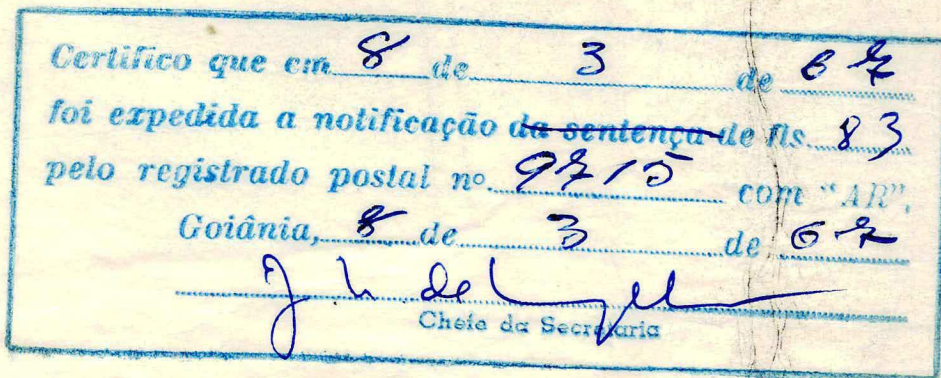 Certifico que em 8 de 3 de 67
foi expedida a notificação da sentença de fls. 83
pelo registrado postal nº 9715 com "AR".
Goiânia, 8 de 3 de 67
Chefe da Secretaria